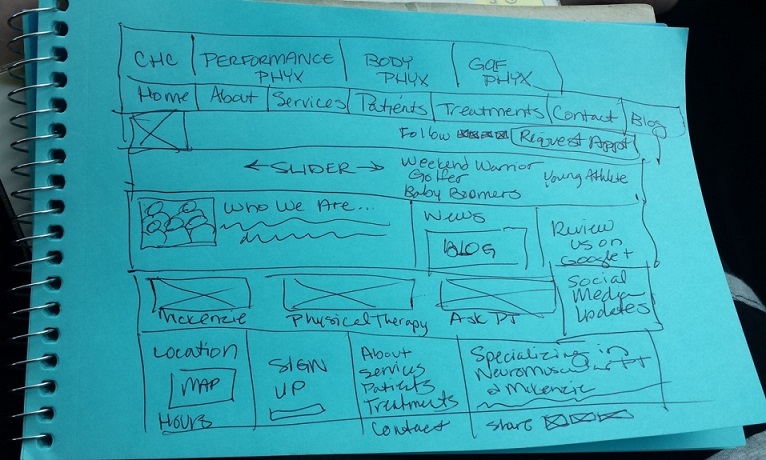 CHC PERFORMANCE PHYX BODY PHYX GOLF PHYX
Home About Services Patients Treatments Contact Blog
Follow Request Appt
SLIDER
Weekend Warrior
Golfer
Baby Boomers
Young Athlete
Who We Are...
News
BLOG
Review
us on
Google+
Mckenzie
Physical Therapy
Ask PT
Social
Media
Updates
Location
MAP
HOURS
SIGN
UP
About
Services
Patients
Treatments
Contact
Specializing in
Neuromuscular PT
& Mckenzie
Share